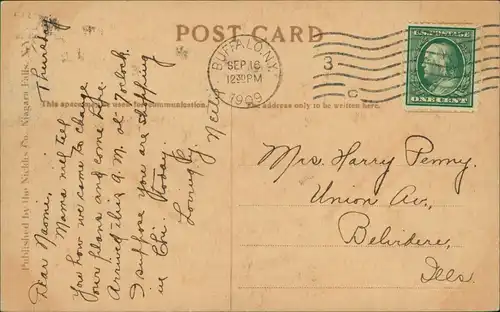 POST CARD
BUFFALO, N.Y.
SEP 16
12-PM
1909
3
C
U.S. POSTAGE
ONE CENT
This space may be used for communication.
The address only to be written here.
Published by the Nichlis Co. Niagara Falls, N.Y.
Thursday
Dear Naomi,
Mama will tell
you how we came to change
our plans and come here.
Arrived this A.M. at 7 o'clock.
I suppose you are shopping
in Chi. today.
Lovingly,
Nelly
Mrs. Harry Penny,
Union Av.,
Belvidere,
Ills.